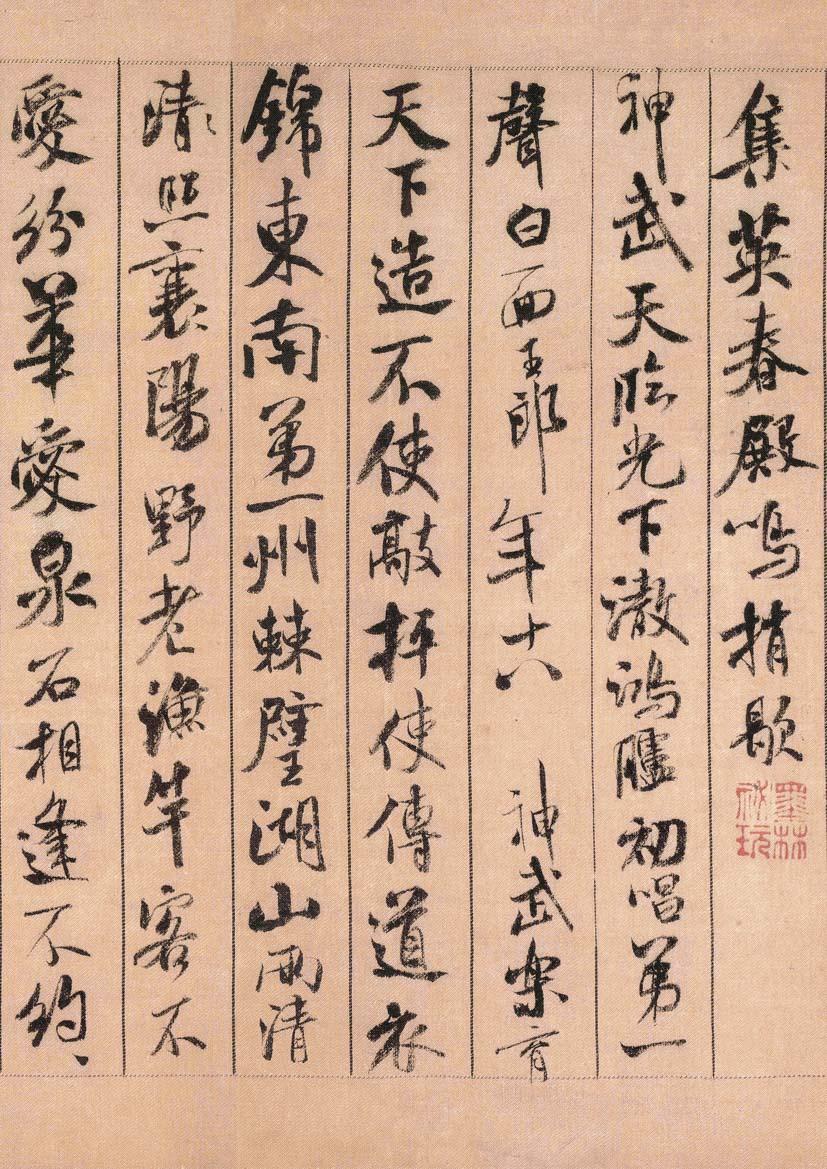 集英春殿鳴捎歇
神武天臨光下澈鴻臚初唱第一
聲白面王郎年十八 神武樂育
天下造不使敲枰使傳道衣
錦東南第一州棘璧湖山兩清
清〻照襄陽野老漁竿客不
愛紛華愛泉石相逢不約〻